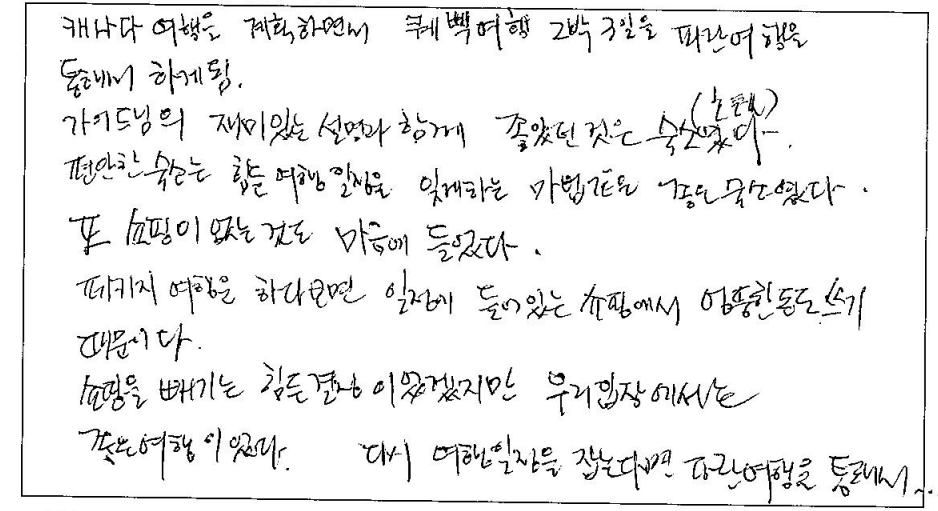 캐나다 여행을 계획하면서 퀘백여행 2박 3일을 파란여행을
통해서 하게됨.
가이드님의 재미있는 설명과 함께 좋았던 것은 숙소였다(호텔).
편안한 숙소는 힘든 여행일정을 잊게하는 마법같은 좋은 숙소였다.
또 쇼핑이 없는것도 마음에 들었다.
패키지 여행을 하다보면 일정에 들어있는 쇼핑에서 엉뚱한돈도 쓰기
때문이다.
쇼핑을 빼기는 힘든결정이었겠지만 우리입장에서는
좋은여행이었다. 다시 여행일정을 잡는다면 파란여행을 통해서...